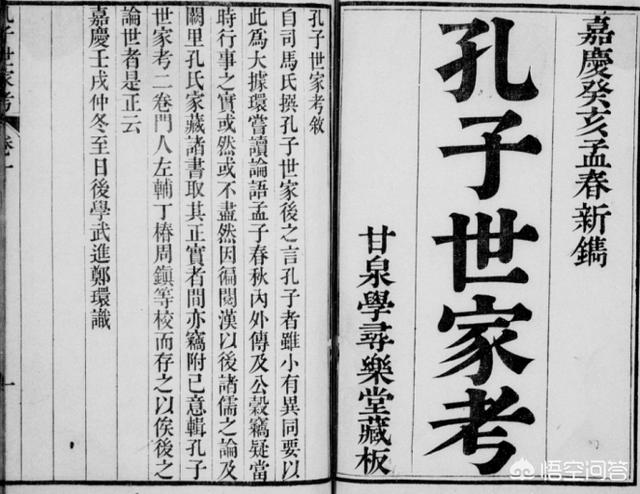 嘉慶癸亥孟春新鐫
孔子世家考
甘泉學尋樂堂藏板
孔子世家考敘
自司馬氏撰孔子世家後之言孔子者雖小有異同要以
此為大據環嘗讀論語孟子春秋內外傳及公穀竊疑當
時行事之實或然或不盡然因徧閱漢以後諸儒之論及
闕里孔氏家藏諸書取其正實者間亦竊附己意輯孔子
世家考二卷門人左輔丁椿周鎮等校而存之以俟後之
論世者是正云
嘉慶壬戌仲冬至日後學武進鄭環識
孔子世家考
卷一
一
悟空问答